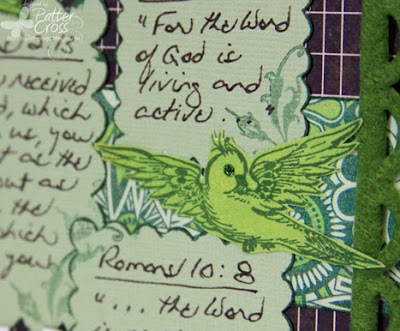 Cross
2:13
received
which
us, you
as the
but as
the
which
you
"For the Word
of God is
living and
active. . "
Romans 10:8
"... the Word